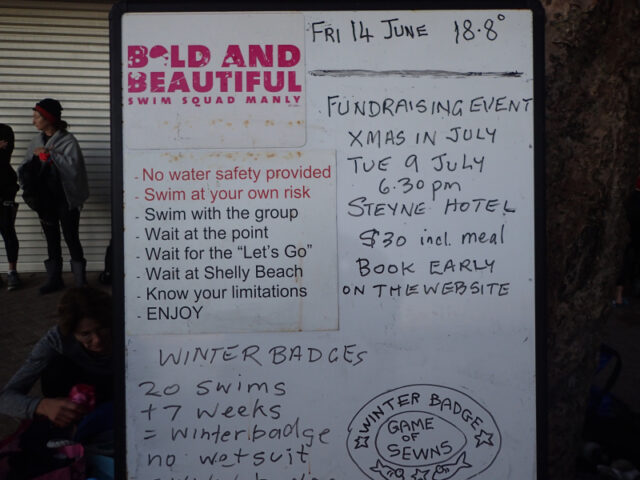 BOLD AND
BEAUTIFUL
SWIM SQUAD MANLY
FRI 14 JUNE 18.8°
- No water safety provided
- Swim at your own risk
- Swim with the group
- Wait at the point
- Wait for the "Let's Go"
- Wait at Shelly Beach
- Know your limitations
- ENJOY
FUNDRAISING EVENT
XMAS IN JULY
TUE 9 JULY
6.30pm
STEYNE HOTEL
$30 incl. meal
BOOK EARLY
ON THE WEBSITE
WINTER BADGES
20 swims
+ 7 weeks
= winterbadge
no wetsuit
WINTER BADGE
GAME
OF
SEWNS